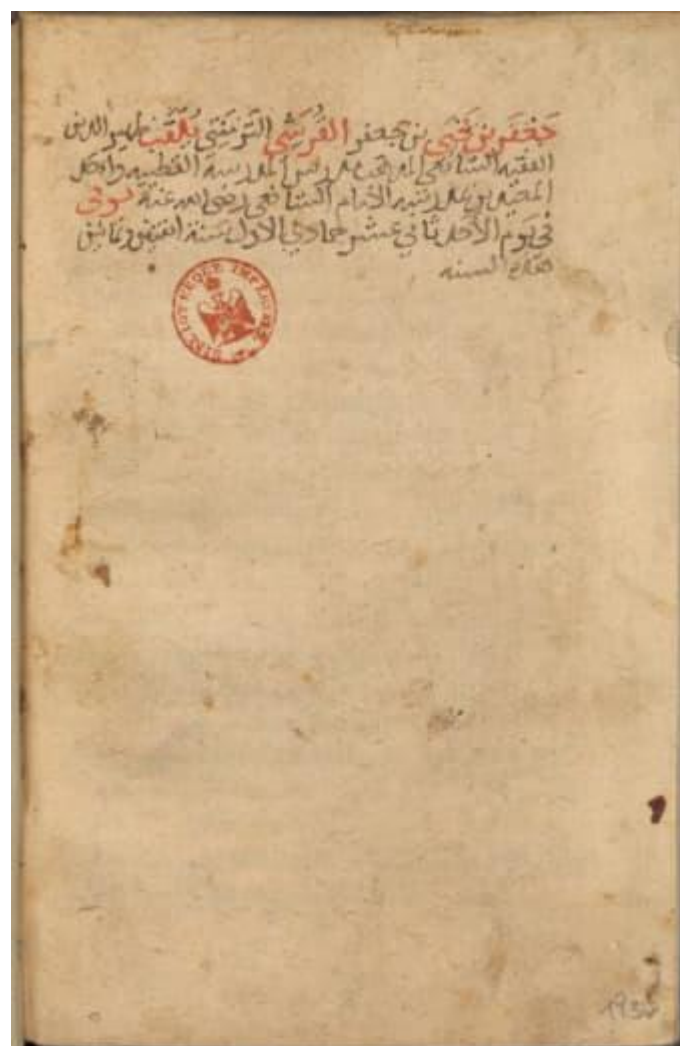 جعفر بن يحيى بن جعفر القرشي التزمنتي يلقب ظهير الدين
الفقيه الشافعي المذهب مدرس المدرسة القطبيه واحد
المعيدين بمدرسة الامام الشافعي رضى الله عنه توفى
فى يوم الأحد ثاني عشر جمادي الاول سنة اثنين وثمانين
BIBLIOTHEQUE IMPERIALE